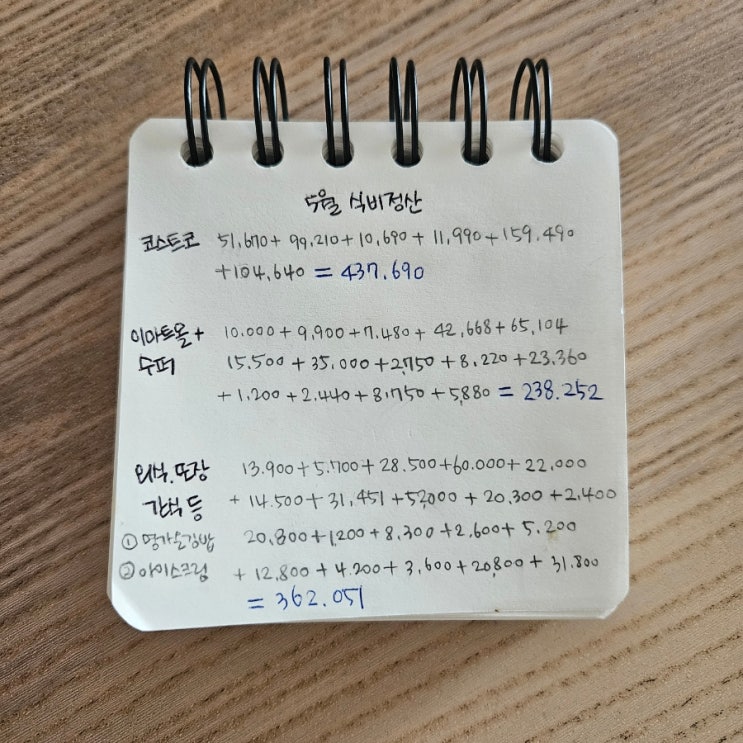 5월 식비정산
코스트코 51,670+ 99,210+10,690+ 11,990+159.490
+104,640 = 437.690
이마트몰+ 10.000+9,900+7.480+ 42,668+65,104
수퍼 15.500+35.000+2,750+8.220+23.360
+1.200+2.440+8.750+5,880 = 238.252
외식.포장 13.900+5.700+28.500+60.000+22.000
간식 등 + 14.500+31,451+52,000+20.300+2.400
① 명가손김밥 20,800+1,200+8,300+2,600+5.200
② 아이스크림 + 12,800+4.200+3,600+20,800+31.800
= 362.051